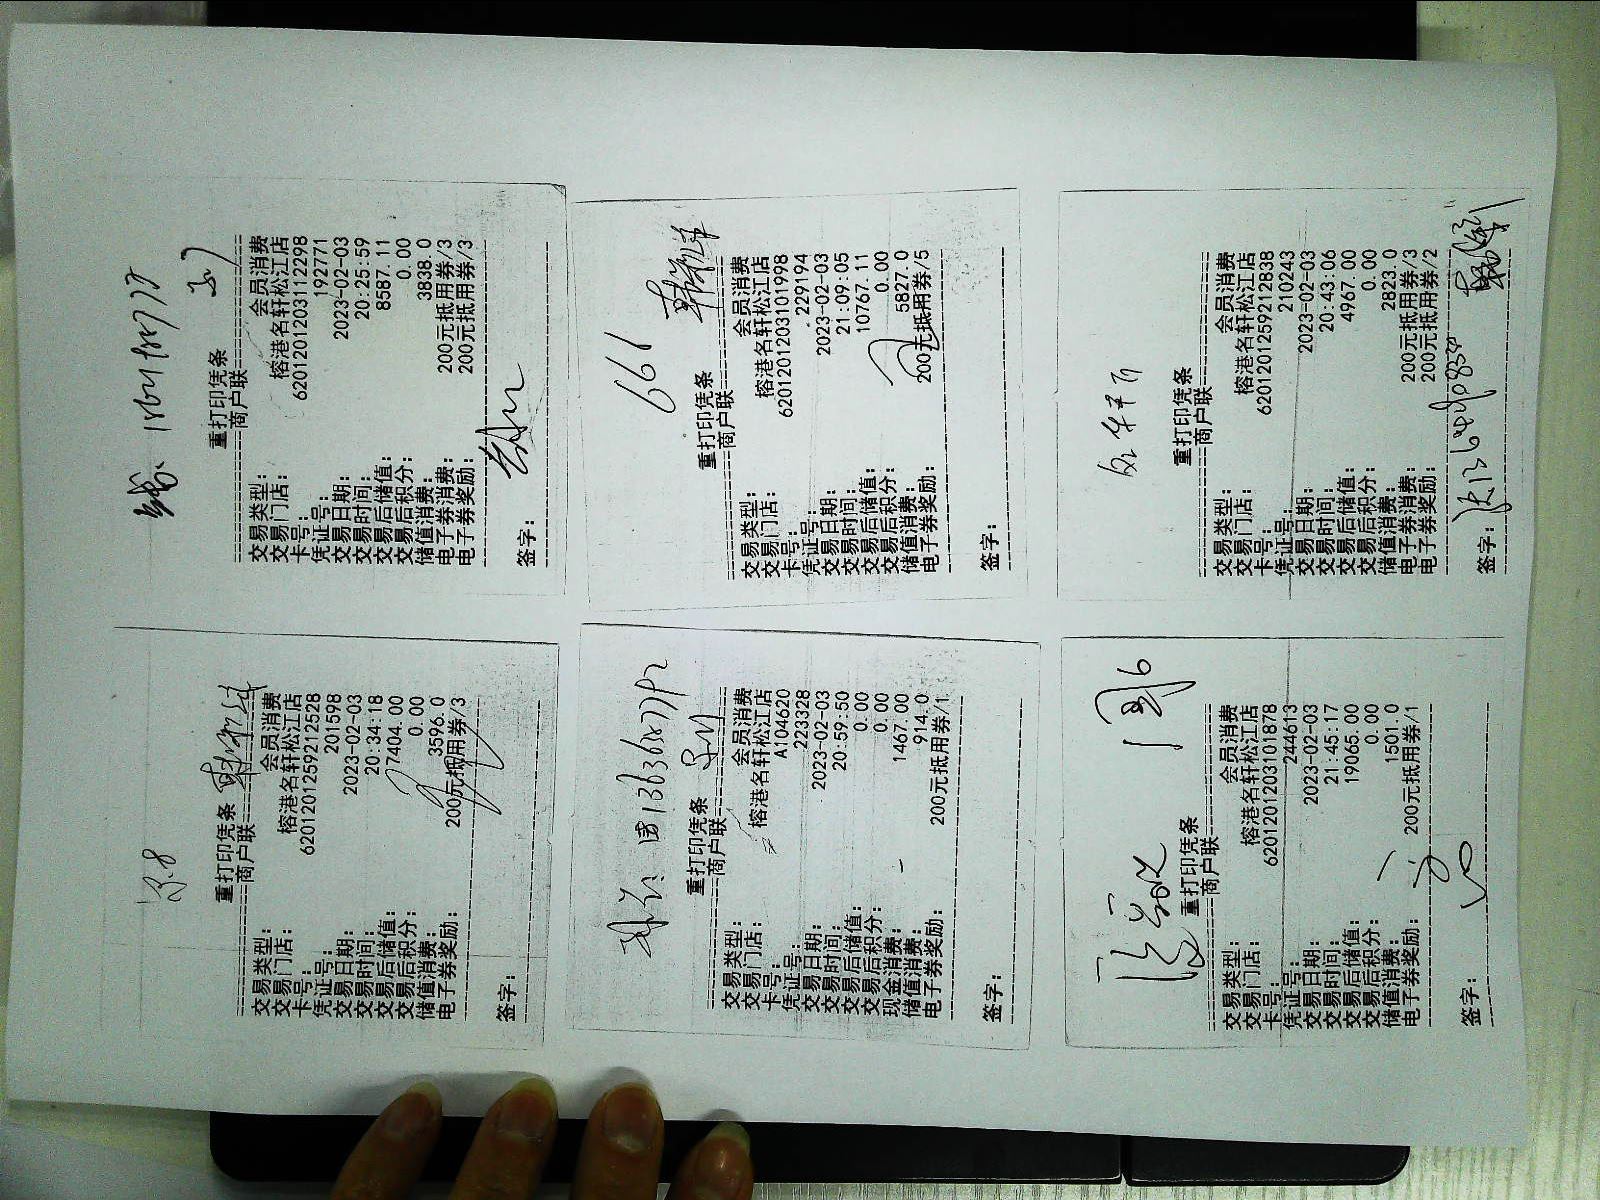 重打印凭条
商户联
交易类型: 会员消费
交易门店: 榕港名轩松江店
卡号: 6201201259212528
凭证号: 201598
交易日期: 2023-02-03
交易时间: 20:34:18
交易后储值: 77404.00
交易后积分: 0.00
储值消费: 3596.0
电子券奖励: 200元抵用券/3
签字:
重打印凭条
商户联
交易类型: 会员消费
交易门店: 榕港名轩松江店
卡号: 6201201203112298
凭证号: 192771
交易日期: 2023-02-03
交易时间: 20:25:59
交易后储值: 8587.11
交易后积分: 0.00
储值消费: 3838.0
电子券消费: 200元抵用券/3
电子券奖励: 200元抵用券/3
签字:
重打印凭条
商户联
交易类型: 会员消费
交易门店: 榕港名轩松江店
卡号: A104620
凭证号: 223328
交易日期: 2023-02-03
交易时间: 20:59:50
交易后储值: 0.00
交易后积分: 0.00
现金消费: 1467.00
储值消费: 914.0
电子券奖励: 200元抵用券/1
签字:
666
重打印凭条
商户联
交易类型: 会员消费
交易门店: 榕港名轩松江店
卡号: 6201201203101998
凭证号: 229194
交易日期: 2023-02-03
交易时间: 21:09:05
交易后储值: 10767.11
交易后积分: 0.00
储值消费: 5827.0
电子券奖励: 200元抵用券/5
签字:
重打印凭条
商户联
交易类型: 会员消费
交易门店: 榕港名轩松江店
卡号: 6201201203101878
凭证号: 244613
交易日期: 2023-02-03
交易时间: 21:45:17
交易后储值: 19065.00
交易后积分: 0.00
储值消费: 1501.0
电子券奖励: 200元抵用券/1
签字:
重打印凭条
商户联
交易类型: 会员消费
交易门店: 榕港名轩松江店
卡号: 6201201259212838
凭证号: 210243
交易日期: 2023-02-03
交易时间: 20:43:06
交易后储值: 4967.00
交易后积分: 0.00
储值消费: 2823.0
电子券消费: 200元抵用券/3
电子券奖励: 200元抵用券/2
签字: